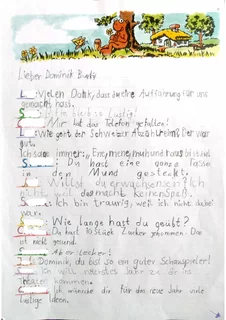 Lieber Dominik
L : Vielen Dank, dass du eine Aufführung für uns
gemacht hast.
S : Lustig!
: Mir hat das Telefon gefallen!
L : Wie geht der Schweizer Abzählreim? Der war
gut.
Ich sage immer: Ene, mene, mu und raus bist
S : Du hast eine ganze
in den Mund gesteckt.
: Willst du erwachsen sein? Ich
nicht, das macht keinen Spaß.
S : Ich bin traurig, weil ich nicht dabei
war.
: Wie lange hast du geübt?
: Du hast 10 Stück Zucker genommen. Das
ist nicht gesund.
: Aber lecker!
: Dominik, du bist so ein guter Schauspieler!
: Ich will nächstes Jahr zu dir ins
Theater kommen.
: Ich wünsche dir für das neue Jahr viele
lustige Ideen.